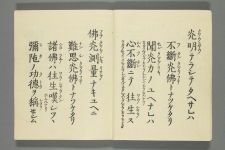 光明テラシテタヘサレハ
不斷光佛トナツケタリ
聞光力ノユヘナレハ
心不斷ニテ往生ス
佛光測量ナキユヘニ
難思光佛トナツケタリ
諸佛ハ往生嘆シツヽ
彌陀ノ功德ヲ稱セシム